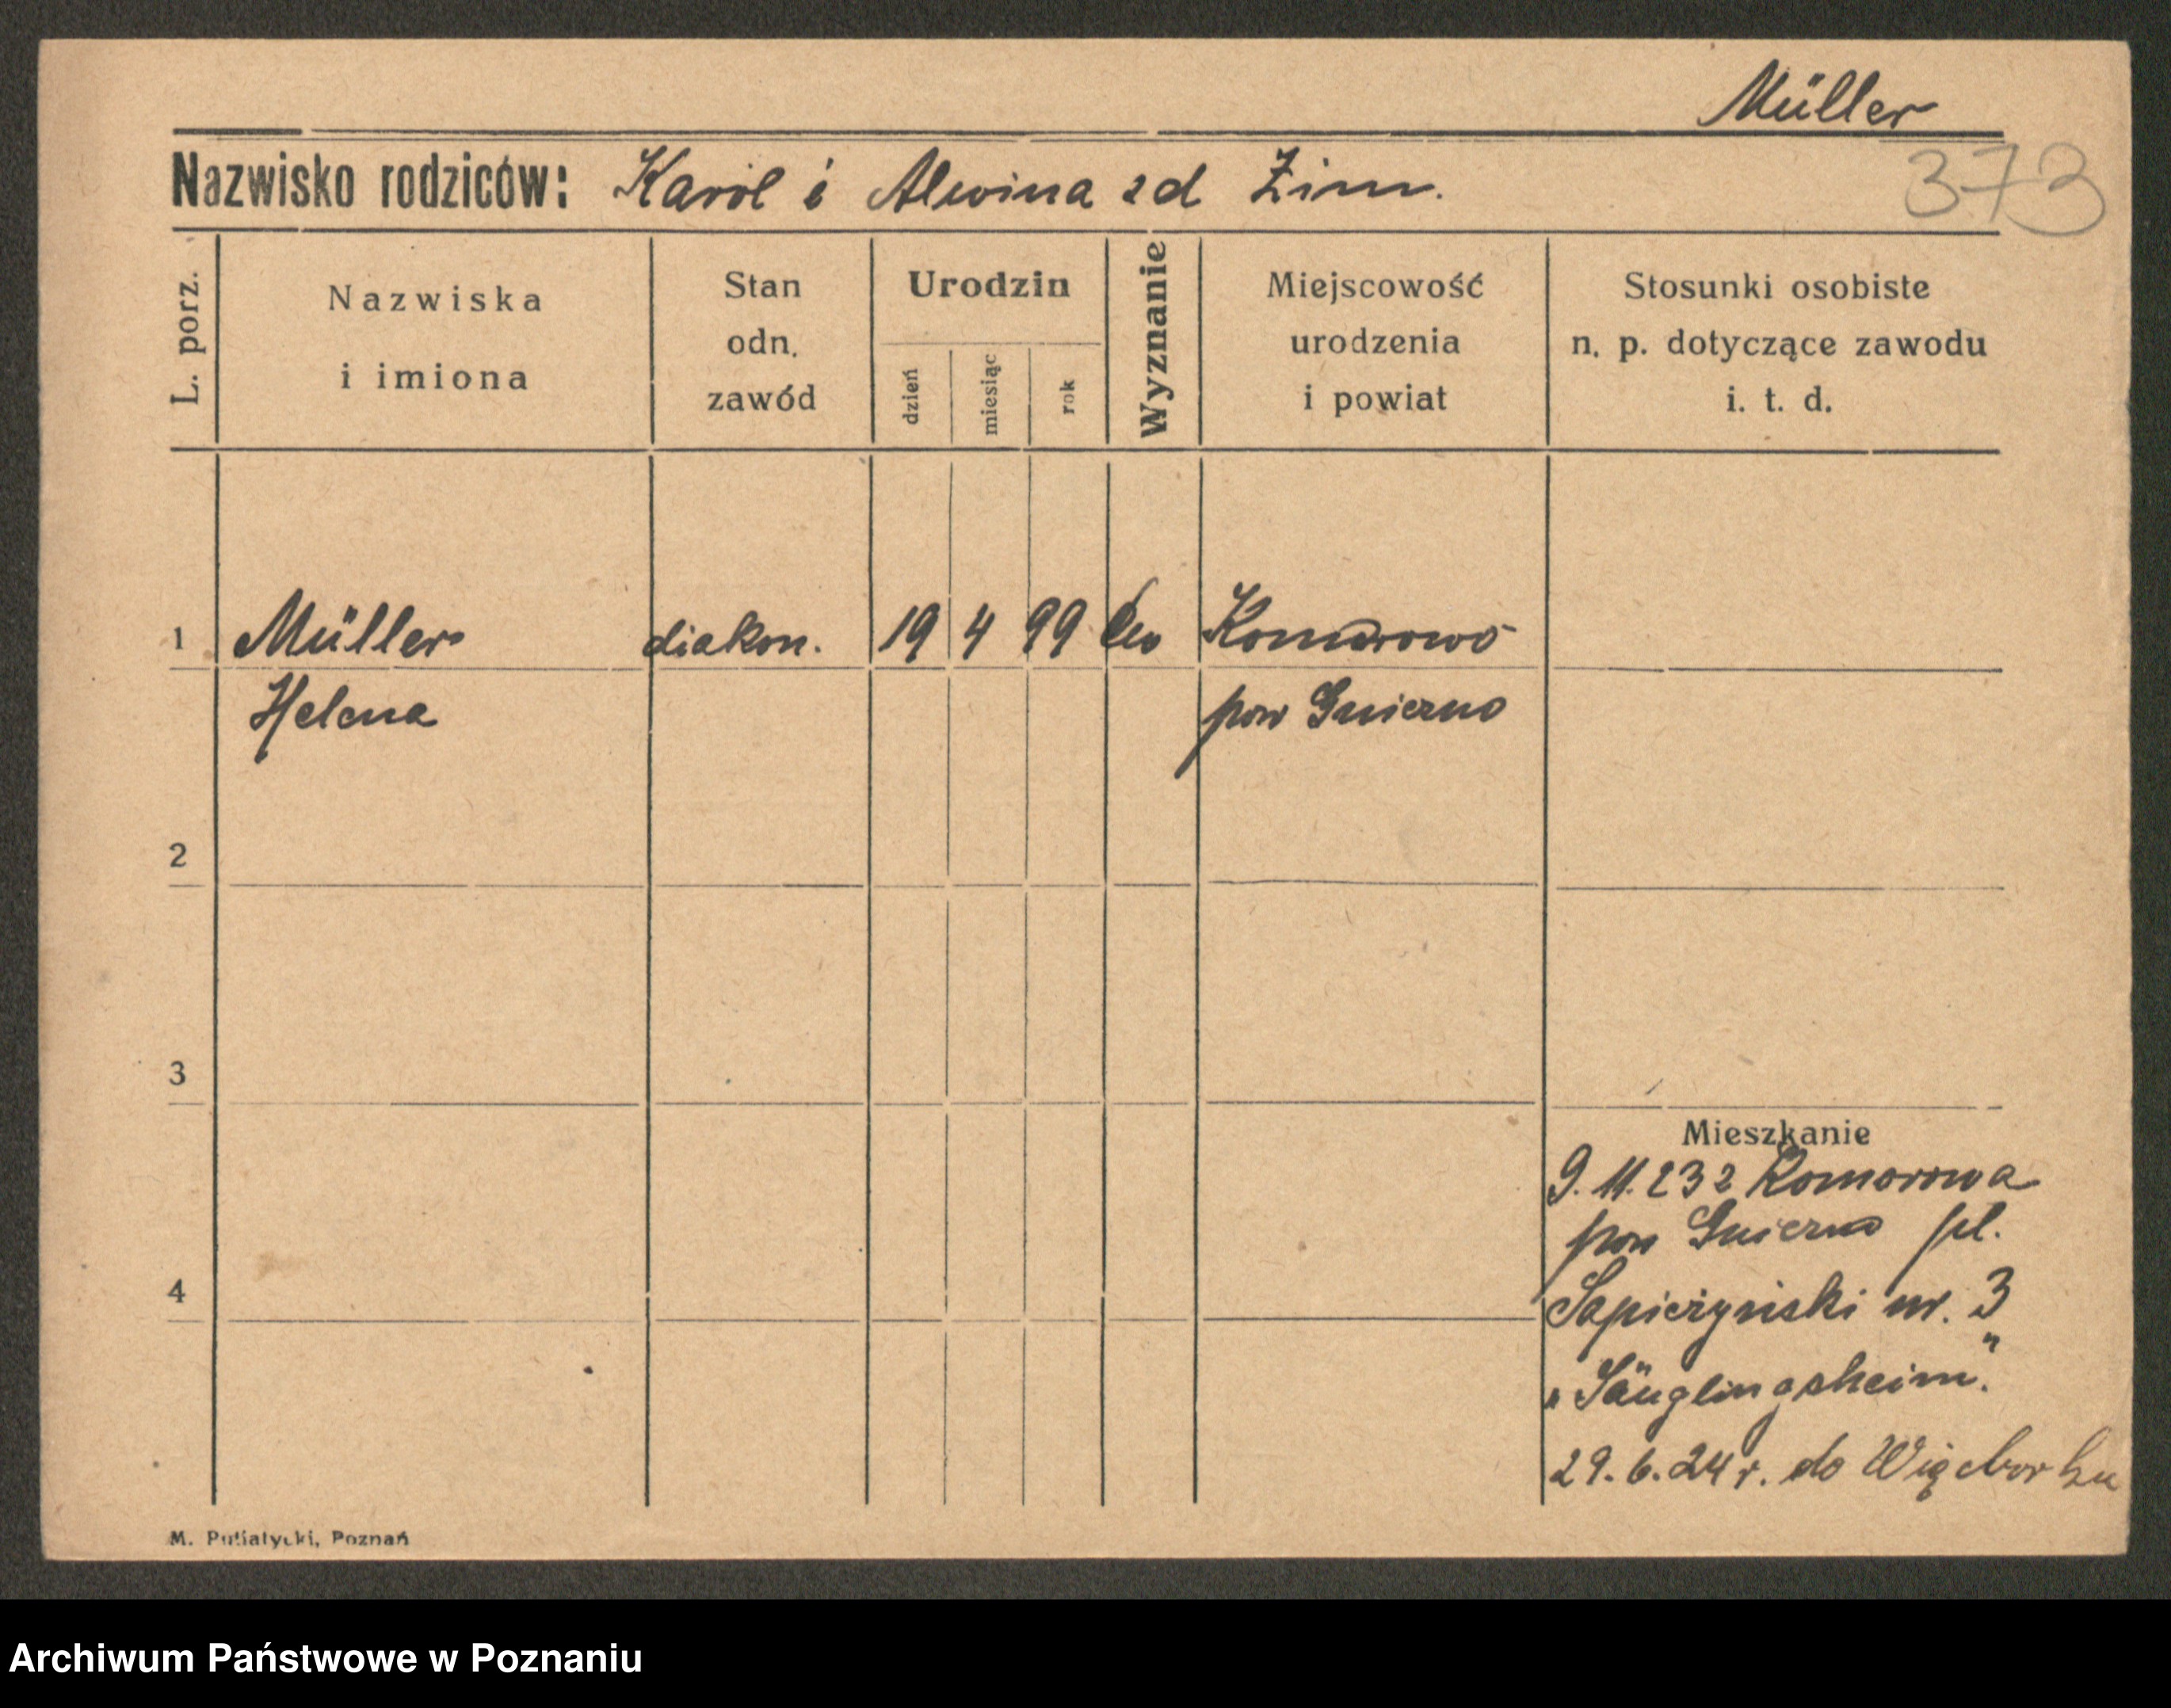 Müller
Nazwisko rodziców: Karol i Alwina zd Zim.
373
L. porz.
Nazwiska
i imiona
Stan
odn.
zawód
Urodzin
dzień
miesiąc
rok
Wyznanie
Miejscowość
urodzenia
i powiat
Stosunki osobiste
n. p. dotyczące zawodu
i. t. d.
1 Müller diakon. 19 4 99 Ew Komorowo
Helena pow Gniezno
2
3
4
Mieszkanie
9. 11. 232 Komorowa
pow Gniezno pl.
Sapieżyński nr. 3
„Säuglingsheim".
29. 6. 24 r. do Więcborku
M. Putiatycki, Poznań
Archiwum Państwowe w Poznaniu